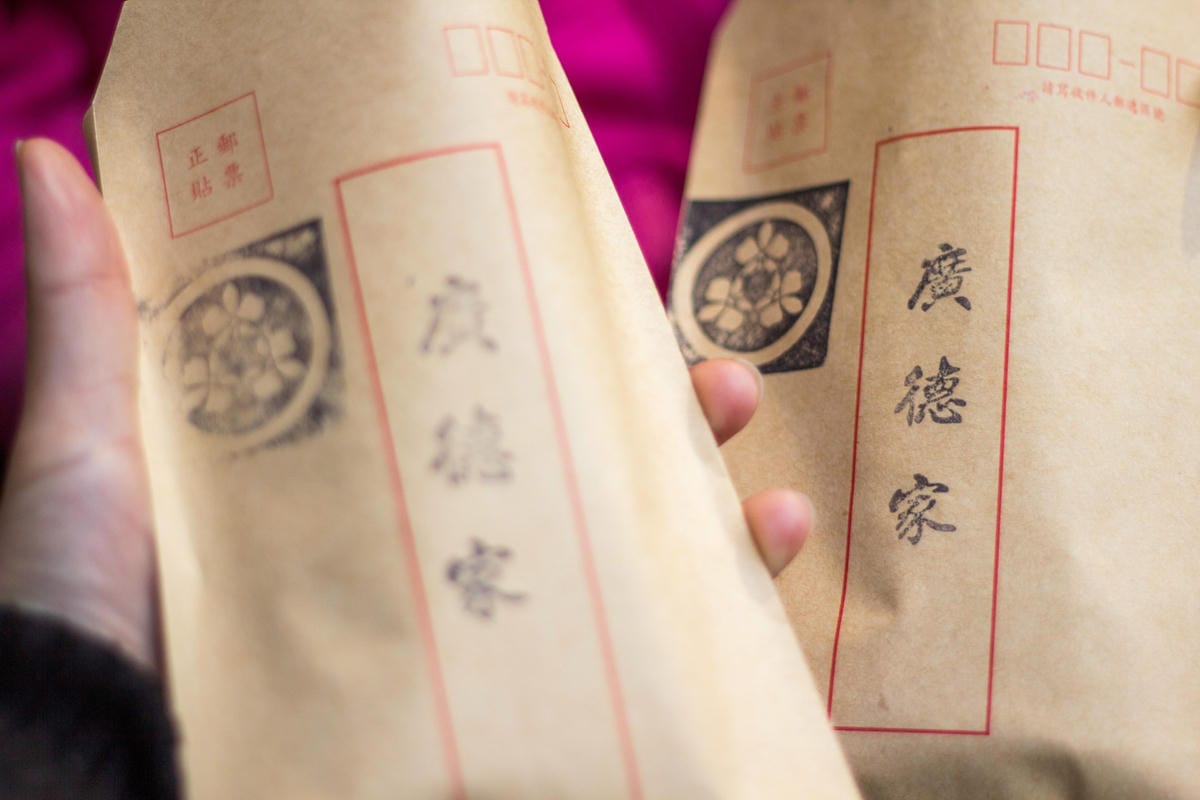 郵票
正貼
廣德家
請寫收件人郵遞區號
廣德家